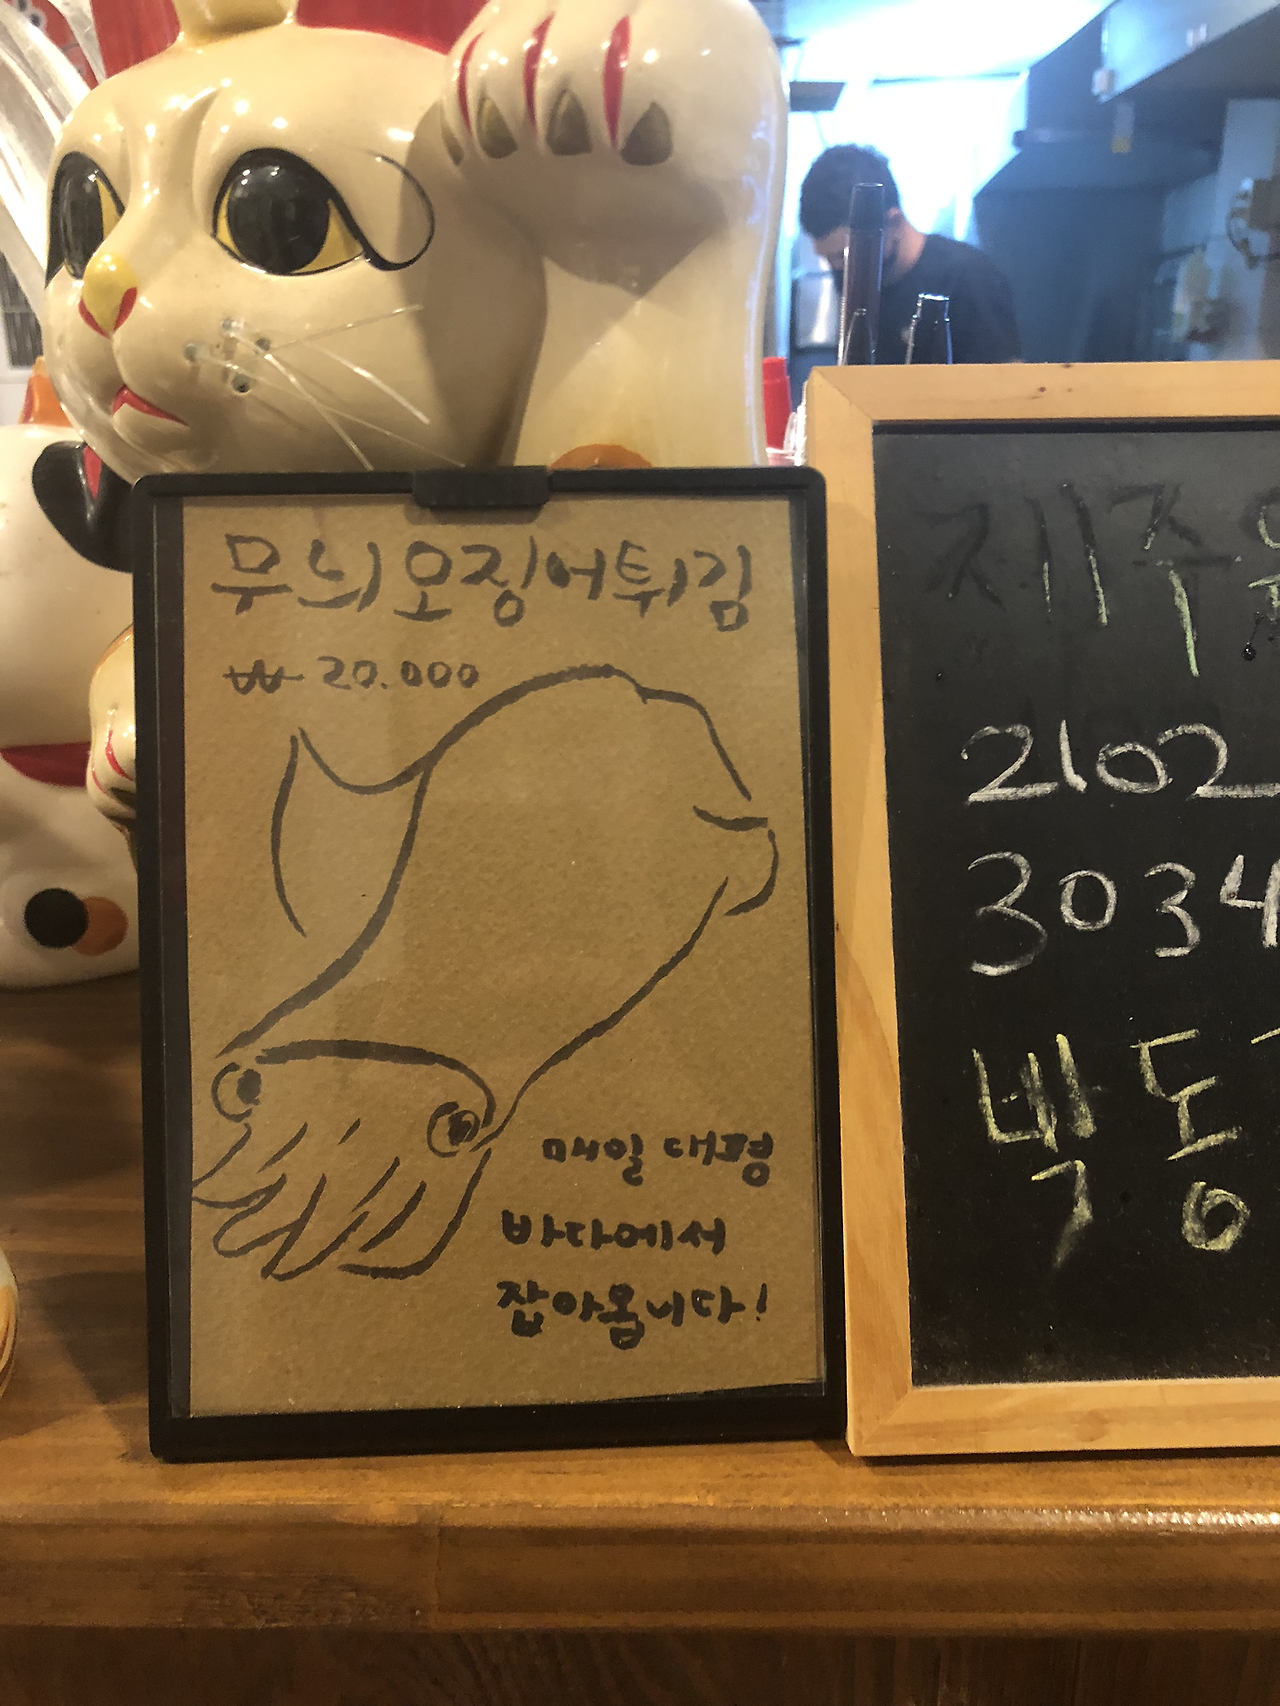 무늬오징어튀김
₩ 20.000
매일 대평
바다에서
잡아옵니다!
제주
2102
3034
박동